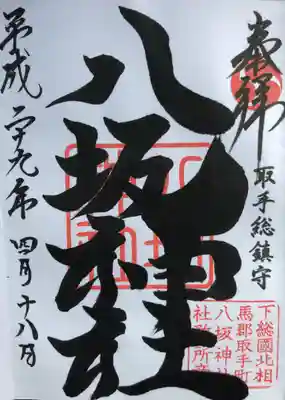 奉拝
取手総鎮守
八坂神社
平成二十九年 四月十八日
下総國北相
馬郡取手町
八坂神社
社務所章